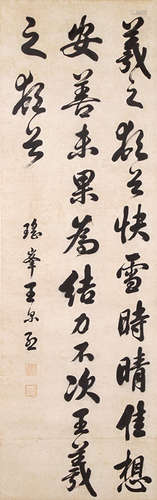 羲之頓首快雪時晴佳想
安善未果為結力不次王羲
之頓首
瑤峯王